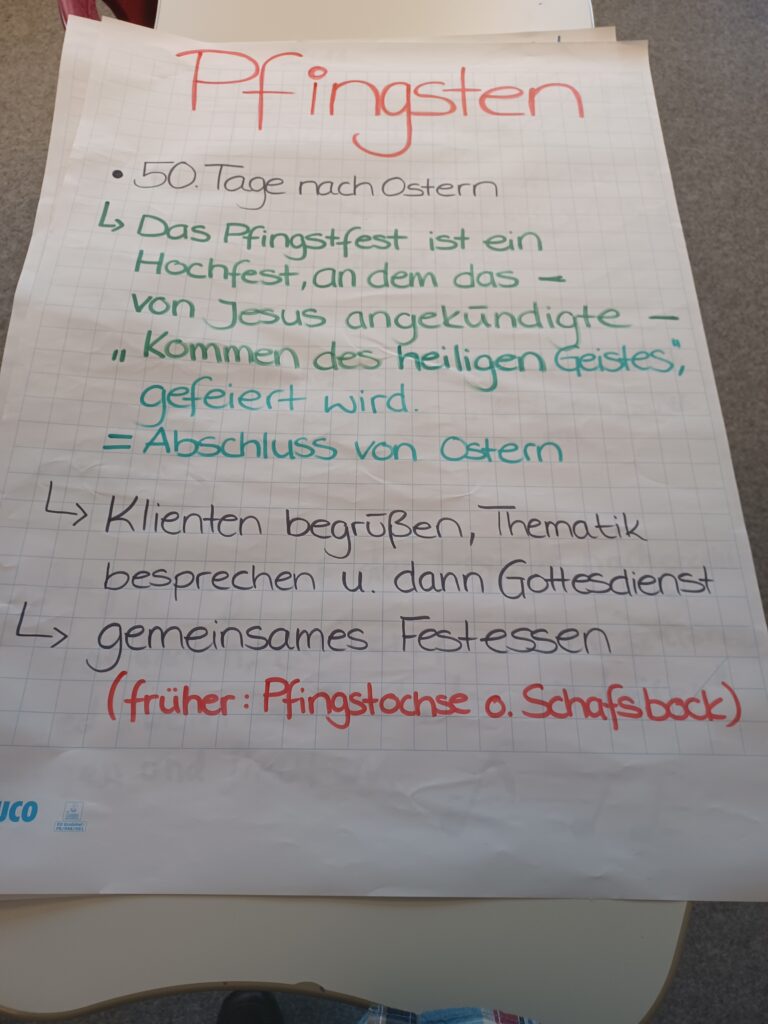 Pfingsten
• 50. Tage nach Ostern
↳ Das Pfingstfest ist ein
Hochfest, an dem das –
von Jesus angekündigte –
„Kommen des heiligen Geistes",
gefeiert wird.
= Abschluss von Ostern
↳ Klienten begrüßen, Thematik
besprechen u. dann Gottesdienst
↳ gemeinsames Festessen
(früher: Pfingstochse o. Schafsbock)